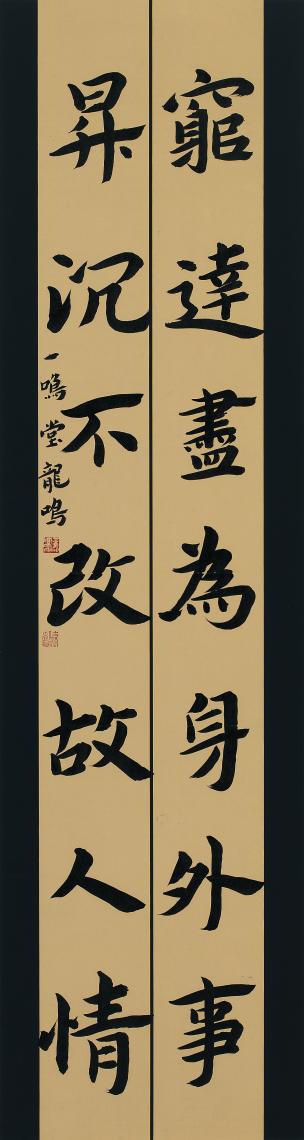 窮達盡為身外事
昇沉不改故人情
一鳴堂龍鳴